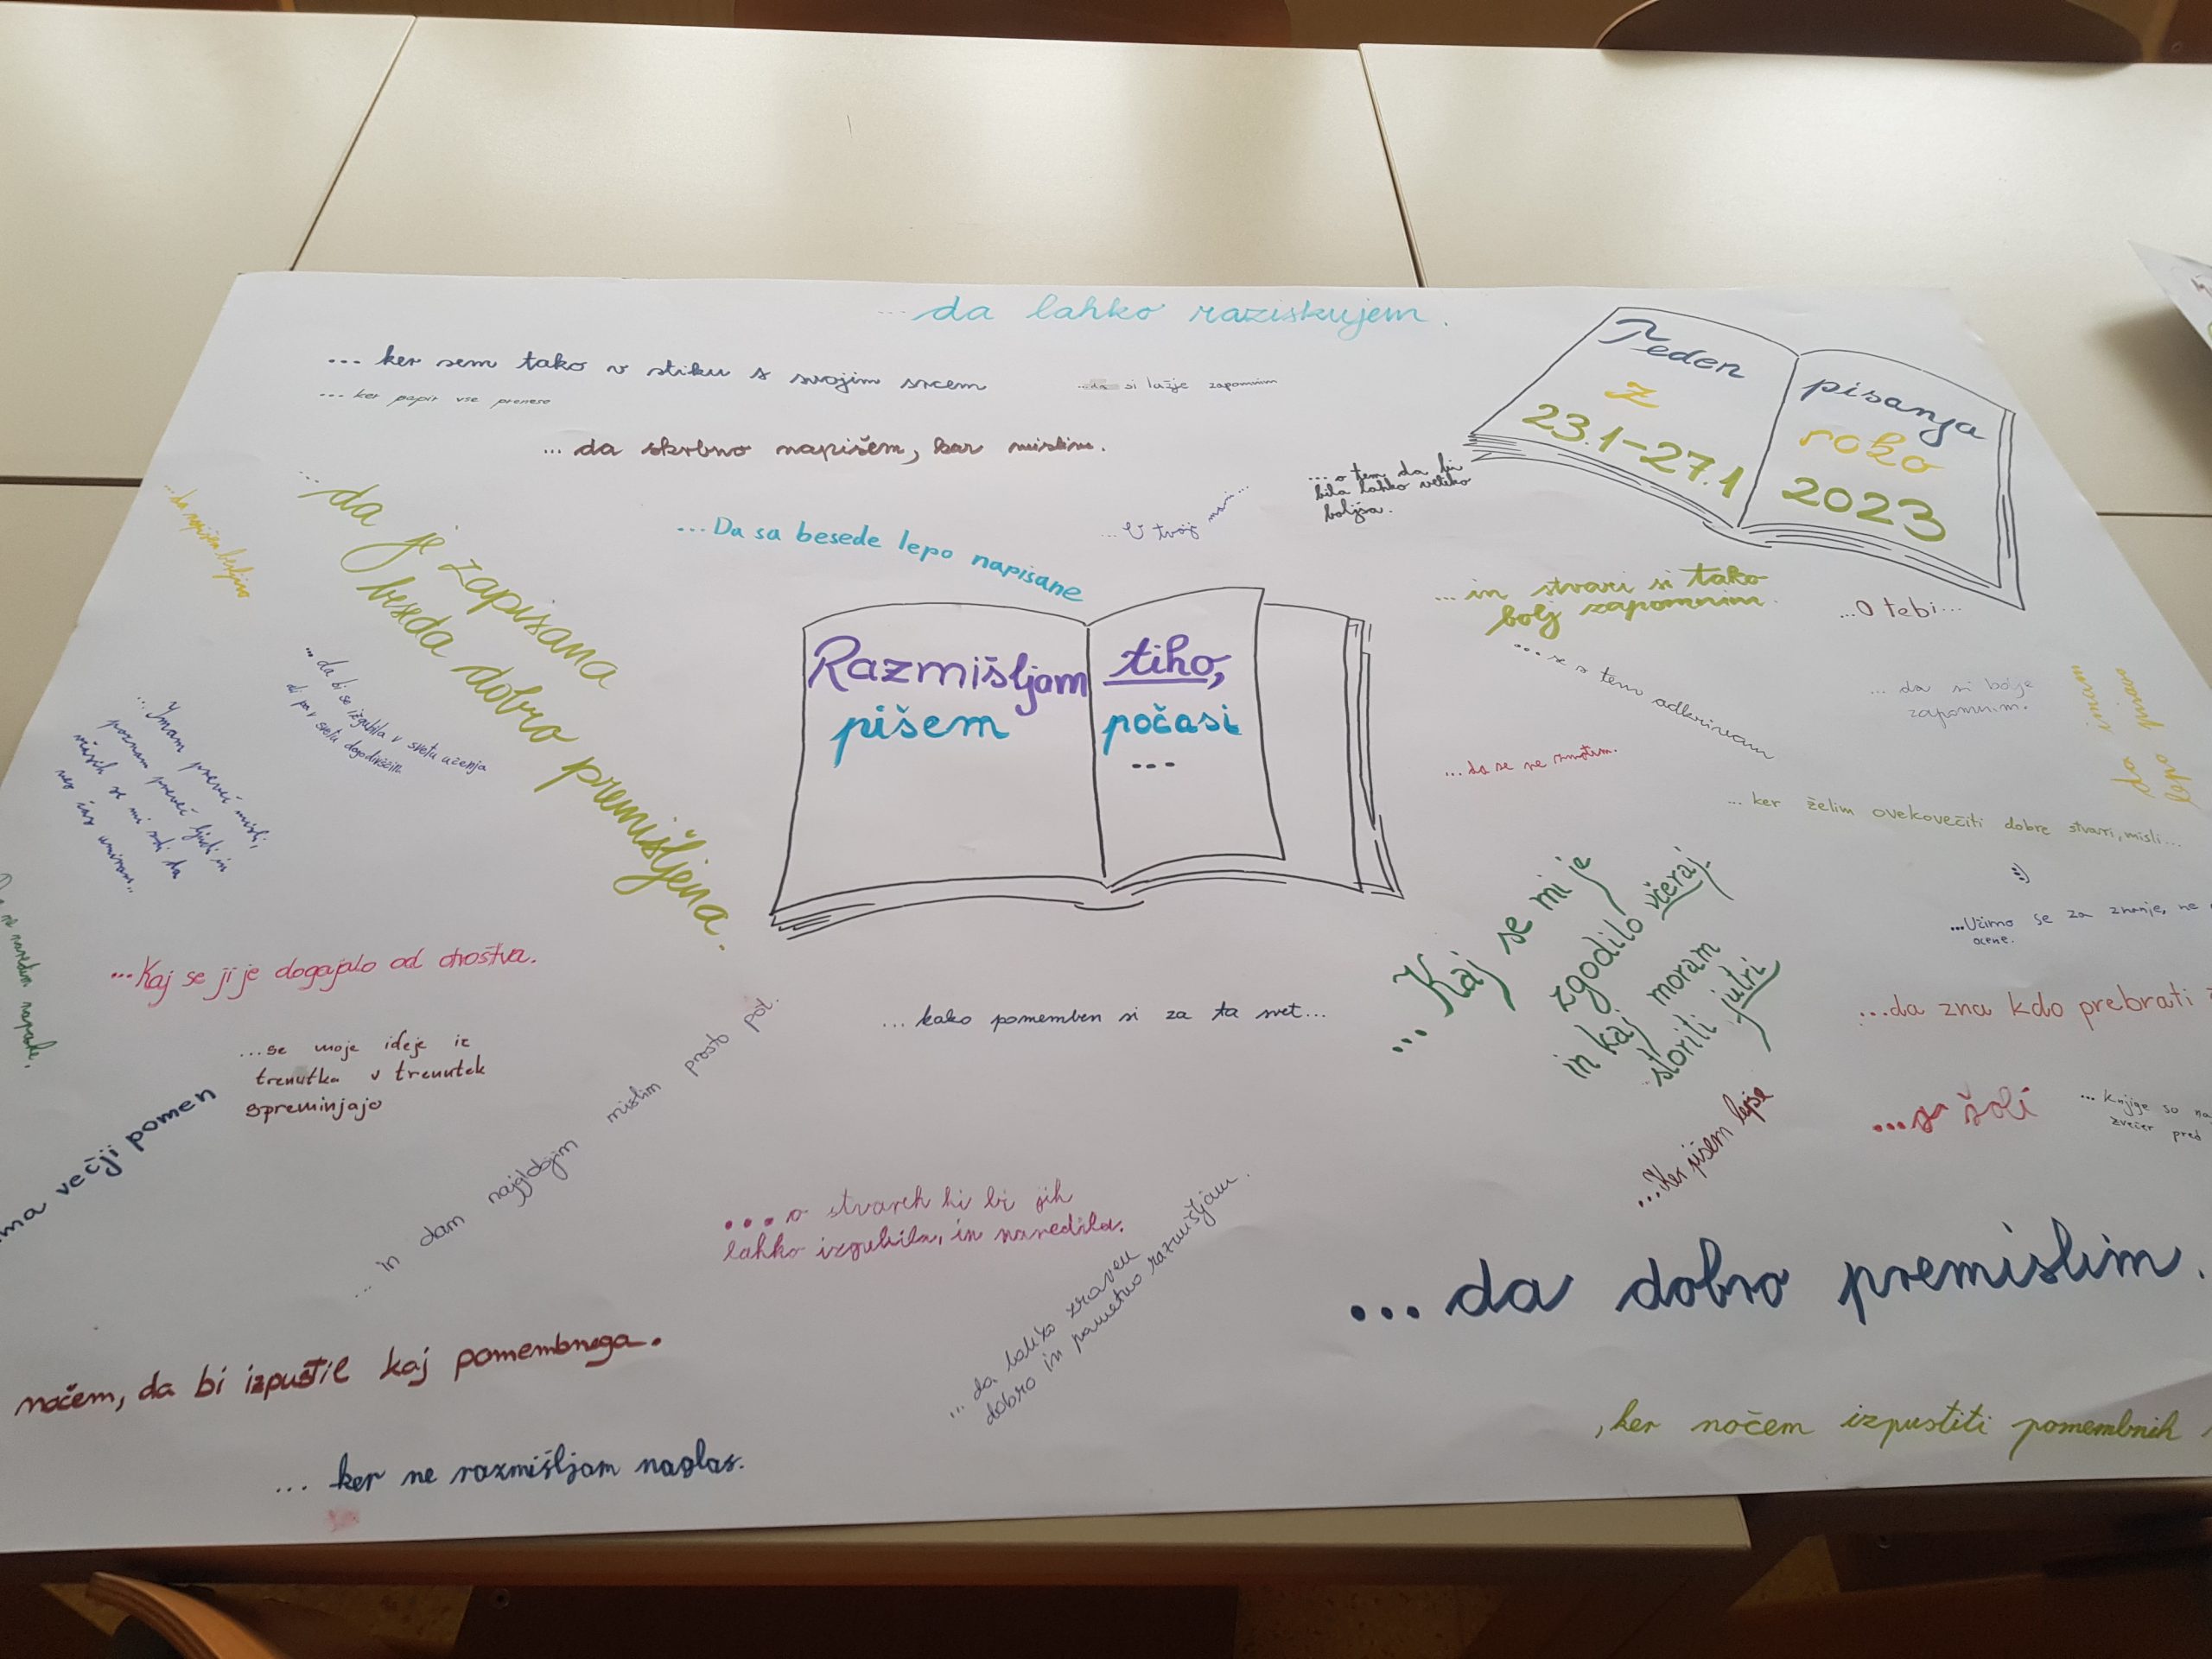 ...da lahko raziskujem.
... ker sem tako v stiku s svojim srcem
... si lažje zapomnim
... ker papir vse prenese
... da skrbno napišem, kar mislim.
Teden
z
23.1-27.1
pisanja
roko
2023
...o tem da bi
bila lahko veliko
boljša.
...da je zapisana
beseda dobro premišljena.
...Da sa besede lepo napisane
...V tvoj
...in stvari si tako
bolj zapomnim.
...O tebi...
Razmišljam
pišem
tiho,
počasi
...
... se o temo odkrivam
... da si bolje
zapomnim.
da imam
lepo pisavo
...da se ne zmotim.
... ker želim ovekovečiti dobre stvari, misli...
:)
...da bi se izgubila v svetu učenja
ali pa v svetu dogodivščin
...Imam preveč misli,
poznam preveč ljudi in
...Učimo se za znanje, ne
ocene.
...Kaj se ji je dogajalo od otroštva.
... Kaj se mi je
zgodilo včeraj
in kaj moram
storiti jutri
... kako pomemben si za ta svet...
...da zna kdo prebrati
...se moje ideje iz
trenutka v trenutek
spreminjajo
ima večji pomen
... in dam najglobjim mislim prosto pot.
...za šoli
... Knjige so
zvečer pred
...Ker pišem lepše
....o stvareh ki bi jih
lahko izgubila, in naredila.
... da lahko zraven
dobro in pametno razmišljam.
...da dobro premislim.
nočem, da bi izpustil kaj pomembnega.
, ker nočem izpustiti pomembnih
... ker ne razmišljam naglas.